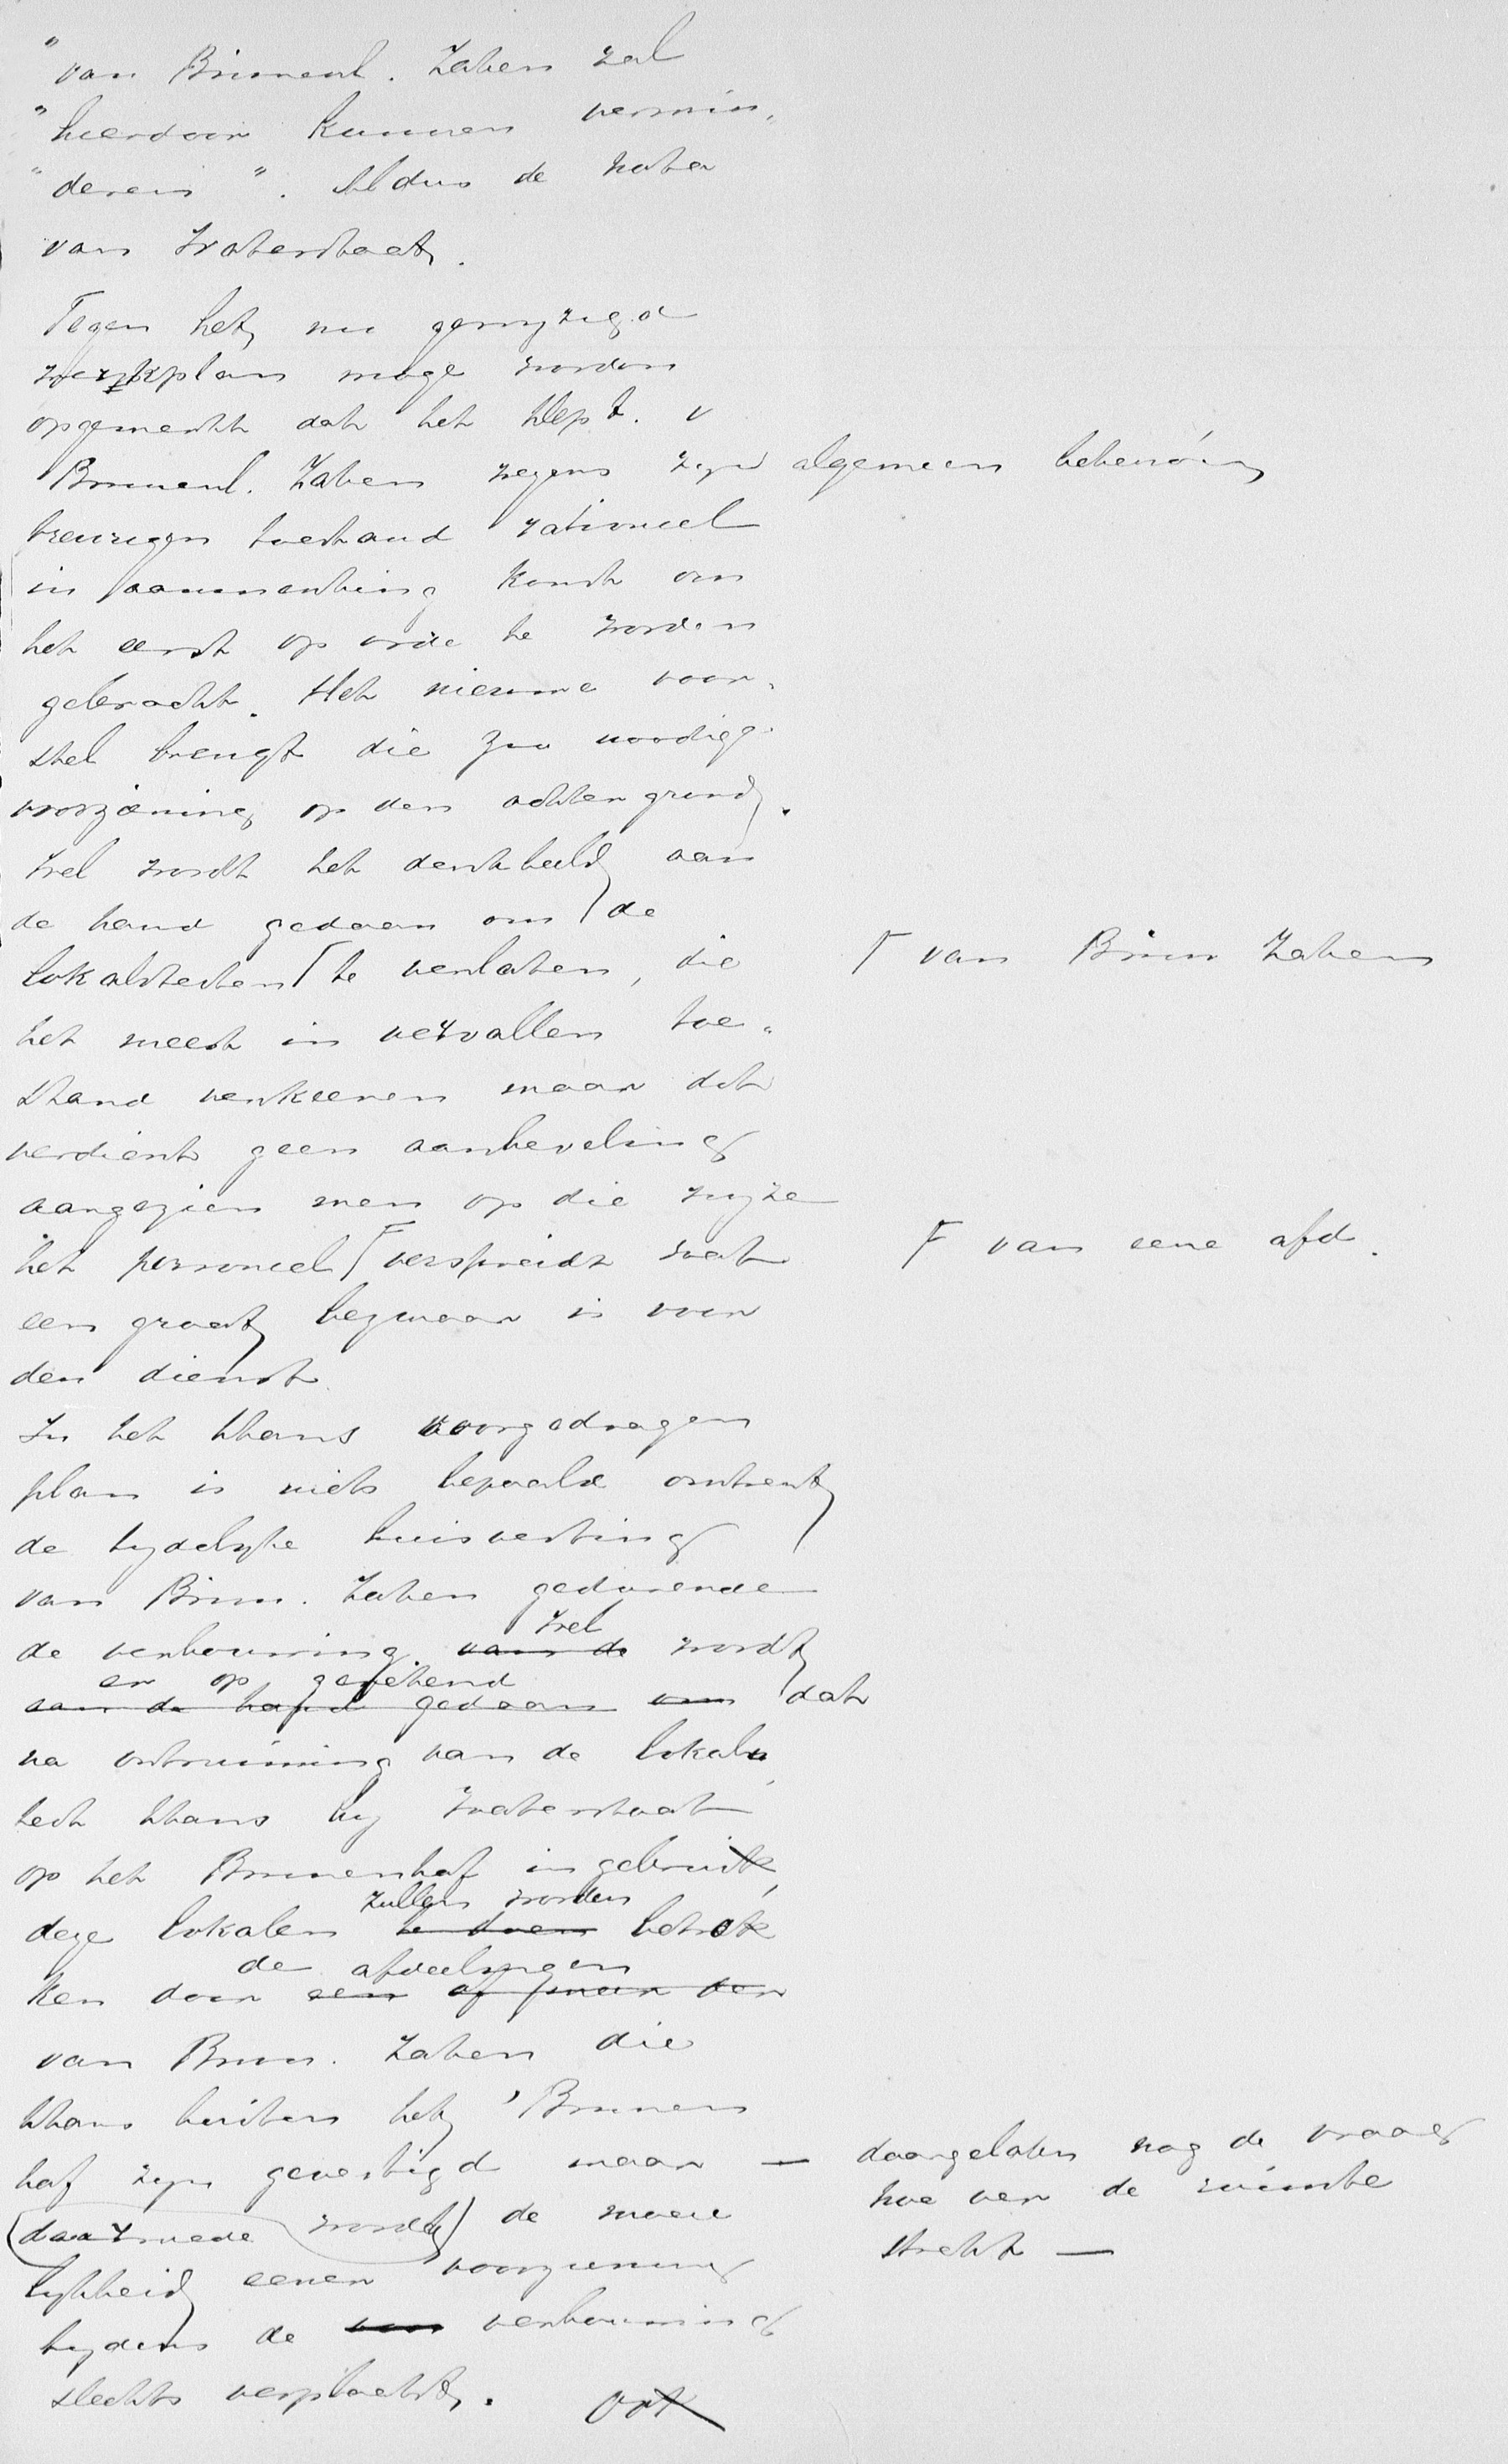 "van Binnenl. Zaken zal
"hierdoor kunnen vermin-
"deren". Aldus de nota
van Waterstaat.
Tegen het nu gewyzigd
werkplan moge worden
opgemerkt dat het Dept. v
Binnenl. Zaken wegens zyn algemeen bekenden
treurigen toestand rationeel
in aanmerking komt om
het eerst op orde te worden
gebracht. Het nieuwe voor-
stel brengt die zoo noodige
voorziening op den achtergrond.
Wel wordt het denkbeeld aan
de hand gedaan om de
lokaliteiten te verlaten, die
F van Binn Zaken
het meest in vervallen toe-
stand verkeeren maar dit
verdient geen aanbeveling
aangezien men op die wyze
het personeel verspreidt wat
F van eene afd.
een groot bezwaar is voor
den dienst.
In het thans voorgedragen
plan is niets bepaald omtrent
de tydelyke huisvesting
van Binn. Zaken gedurende
wel
de verbouwing. van de wordt
er op gerekend
aan de hand gedaan om dat
na ontruiming van de lokali-
teit thans by Waterstaat
op het Binnenhof in gebruik,
zullen worden
deze lokalen te doen betrok
de afdeelingen
ken door een of meer der
van Binn. Zaken die
thans buiten het Binnen
hof zyn gevestigd maar —
daargelaten nog de vraag
hoe ver de ruimte
strekt —
(daarmede wordt) de moeie
lykheid eener voorziening
tydens de van verbouwing
slechts verplaatst. Ook